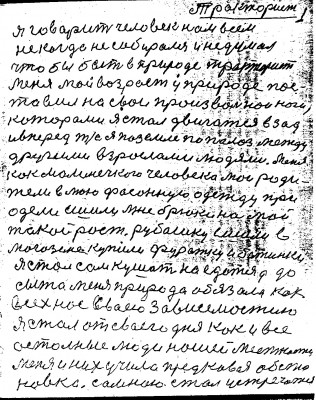 Тракторист 1
я говарит человек нам всем
некогда не собирался и не думал
что бы быть в природе тракторист
меня мой возрост у природе пос-
тавил на свои произвольное ноги
которами я стал двигатся взад
и вперед т/с я поземле пополоз между
другими взрослами людями. Меня
как маленького человека мое роди-
тели в мою фасонную одежду при
одели сшили мне брюки на мой
такой рост, рубашку сшили в
могозине купили фуражку и батинки
я стал сам кушат наедотся до
сыта меня природа обязала как
всех нас своею зависемостию
я стал от сваего дня как и все
остольные люди нашей местности
меня и них учила предковая обста
новка. самною стал встречатся